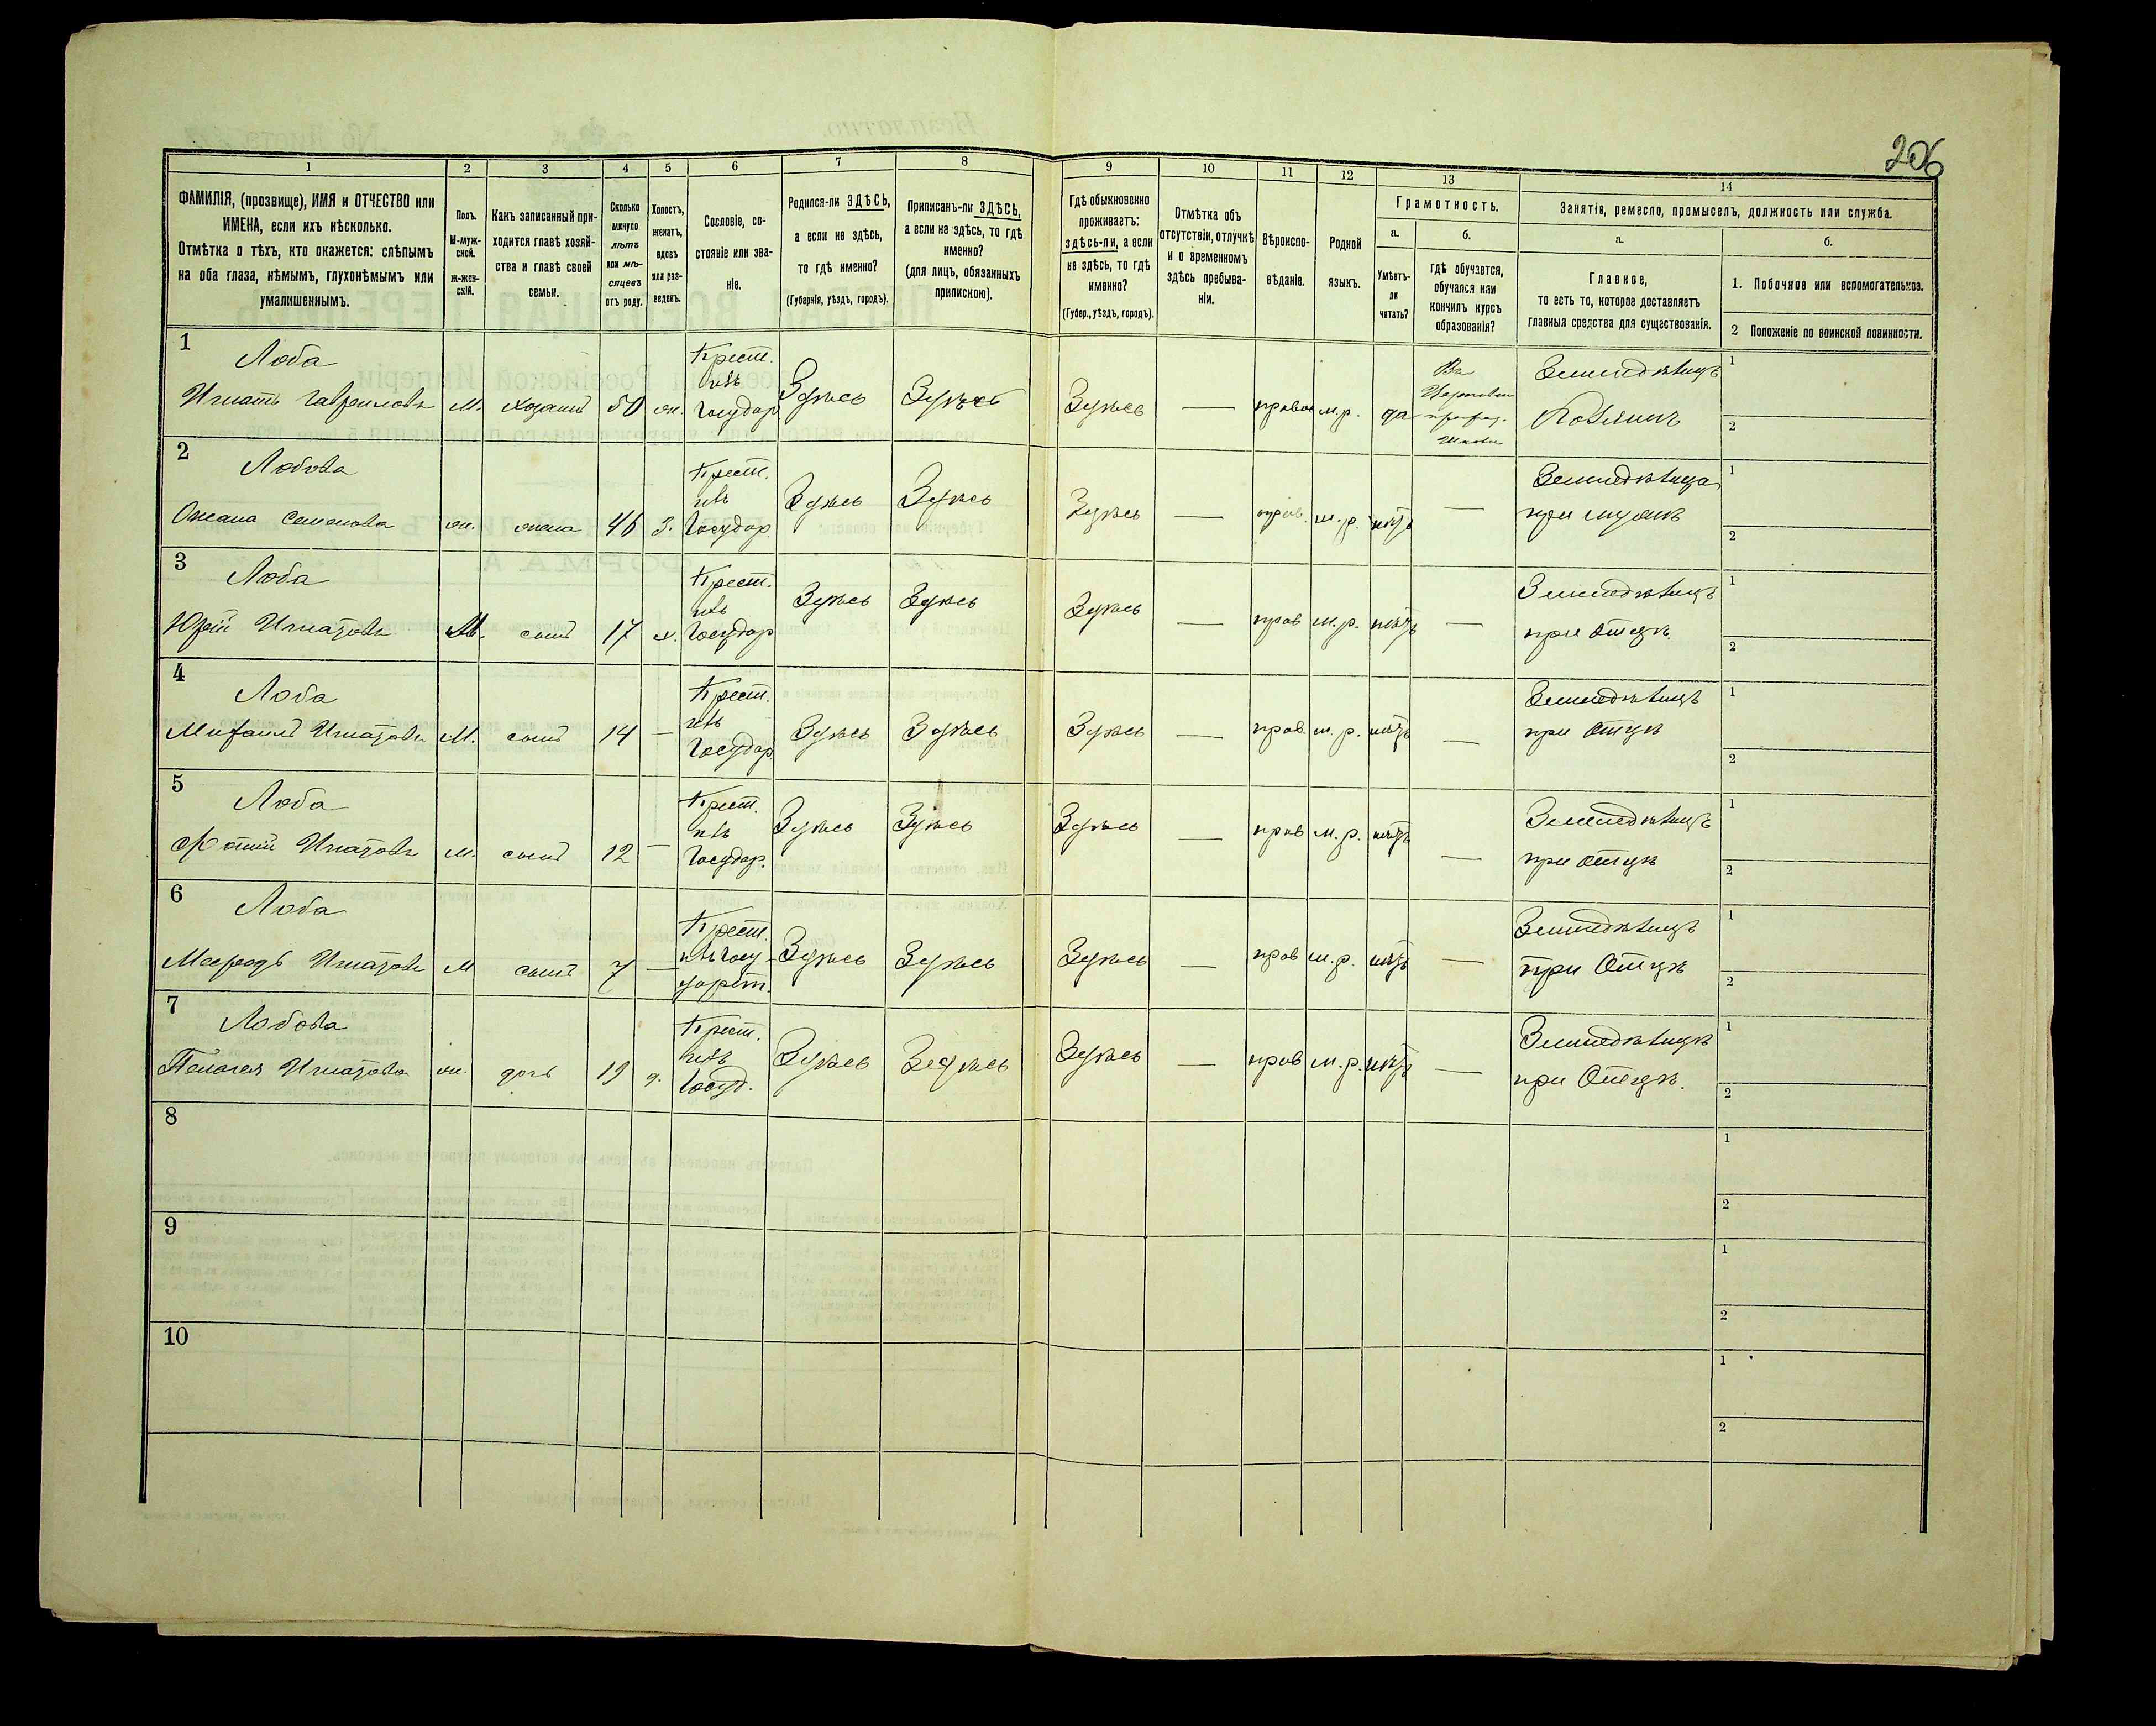 206
1 2 3 4 5 6 7 8 9 10 11 12 13 14
ФАМИЛІЯ, (прозвище), ИМЯ и ОТЧЕСТВО или
ИМЕНА, если ихъ нѣсколько.
Отмѣтка о тѣхъ, кто окажется: слѣпымъ
на оба глаза, нѣмымъ, глухонѣмымъ или
умалишеннымъ.
Полъ.
М-муж-
ской.
Ж-жен-
скій.
Какъ записанный при-
ходится главѣ хозяй-
ства и главѣ своей
семьи.
Сколько
минуло
лѣтъ
или мѣ-
сяцевъ
отъ роду.
Холостъ,
женатъ,
вдовъ
или раз-
веденъ.
Сословіе, со-
стояніе или зва-
ніе.
Родился-ли ЗДѢСЬ,
а если не здѣсь,
то гдѣ именно?
(Губернія, уѣздъ, городъ).
Приписанъ-ли ЗДѢСЬ,
а если не здѣсь, то гдѣ
именно?
(для лицъ, обязанныхъ
припискою).
Гдѣ обыкновенно
проживаетъ:
здѣсь-ли, а если
не здѣсь, то гдѣ
именно?
(Губер., уѣздъ, городъ).
Отмѣтка объ
отсутствіи, отлучкѣ
и о временномъ
здѣсь пребыва-
ніи.
Вѣроиспо-
вѣданіе.
Родной
языкъ.
Грамотность.
а.
Умѣетъ-
ли
читать?
б.
гдѣ обучается,
обучался или
кончилъ курсъ
образованія?
Занятіе, ремесло, промыселъ, должность или служба.
а.
Главное,
то есть то, которое доставляетъ
главныя средства для существованія.
б.
1. Побочное или вспомогательное.
2 Положеніе по воинской повинности.
1
Лоба
Игнатъ Гавриловъ М. хозяинъ 50 ж.
Крест.
изъ
Государ.
Здѣсь Здѣсь Здѣсь — правос м.р. да
Въ
Церковно
приход.
Земледѣлецъ
1
2
2
Лобова
Оксана Семенова ж. жена 46 З.
Крест.
изъ
Государ.
Здѣсь Здѣсь Здѣсь — прав. м.р. нѣтъ —
Земледѣлица
при мужѣ
1
2
3
Лоба
Юрій Игнатовъ М. сынъ 17 х.
Крест.
изъ
Государ
Здѣсь Здѣсь Здѣсь — прав м.р. нѣтъ —
Земледѣлецъ
при отцѣ.
1
2
4
Лоба
Михаилъ Игнатовъ М. сынъ 14 —
Крест.
изъ
Государ.
Здѣсь Здѣсь Здѣсь — прав. м.р. нѣтъ —
Земледѣлецъ
при отцѣ
1
2
5
Лоба
Фотій Игнатовъ м. сынъ 12 —
Крест.
изъ
Государ.
Здѣсь Здѣсь Здѣсь — прав м.р. нѣтъ —
Земледѣлецъ
при отцѣ
1
2
6
Лоба
Игнатовъ М сынъ 7 —
Крест.
изъ Госу-
дарст.
Здѣсь Здѣсь Здѣсь — прав м.р. нѣтъ —
Земледѣлецъ
при Отцѣ
1
2
7
Лобова
Пелагея Игнатова ж. дочь 19 д.
Крест.
изъ
Госуд.
Здѣсь Здѣсь Здѣсь — прав м.р. нѣтъ —
при Отцѣ.
1
2
8
1
2
9
1
2
10
1
2